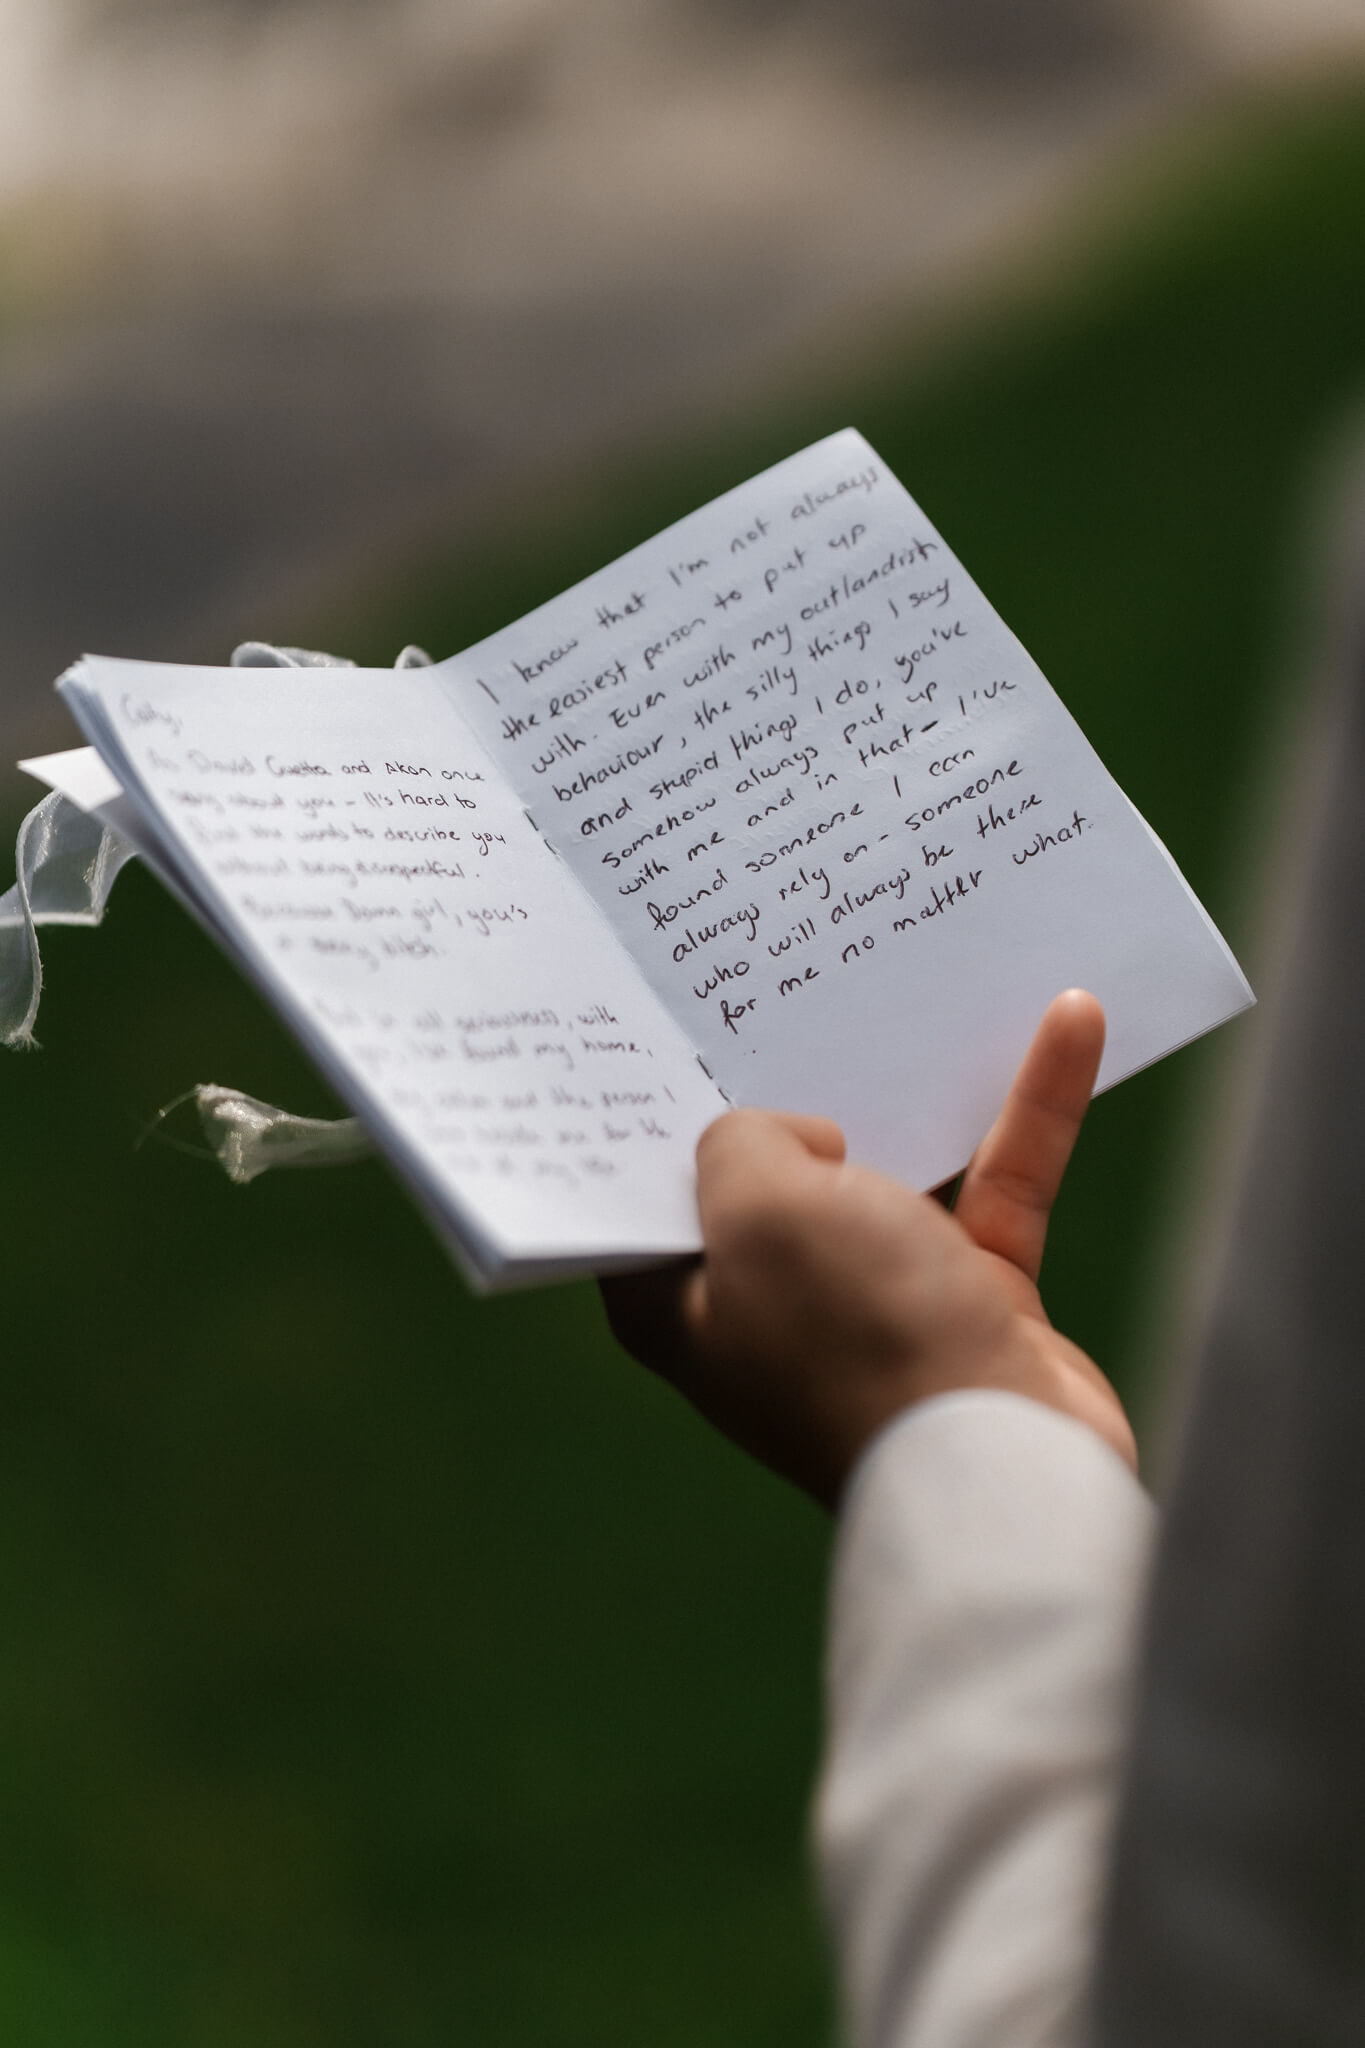 Caty,
As David Guetta and Akon once
sang about you - It's hard to
find the words to describe you
without being disrespectful.
Because Damn girl, you's
a sexy bitch.
But in all seriousness, with
you, I've found my home,
my and the person I
me for the
of my life
I know that I'm not always
the easiest person to put up
with. Even with my outlandish
behaviour, the silly things I say
and stupid things I do, you've
somehow always put up
with me and in that - I've
found someone I can
always rely on - someone
who will always be there
for me no matter what.